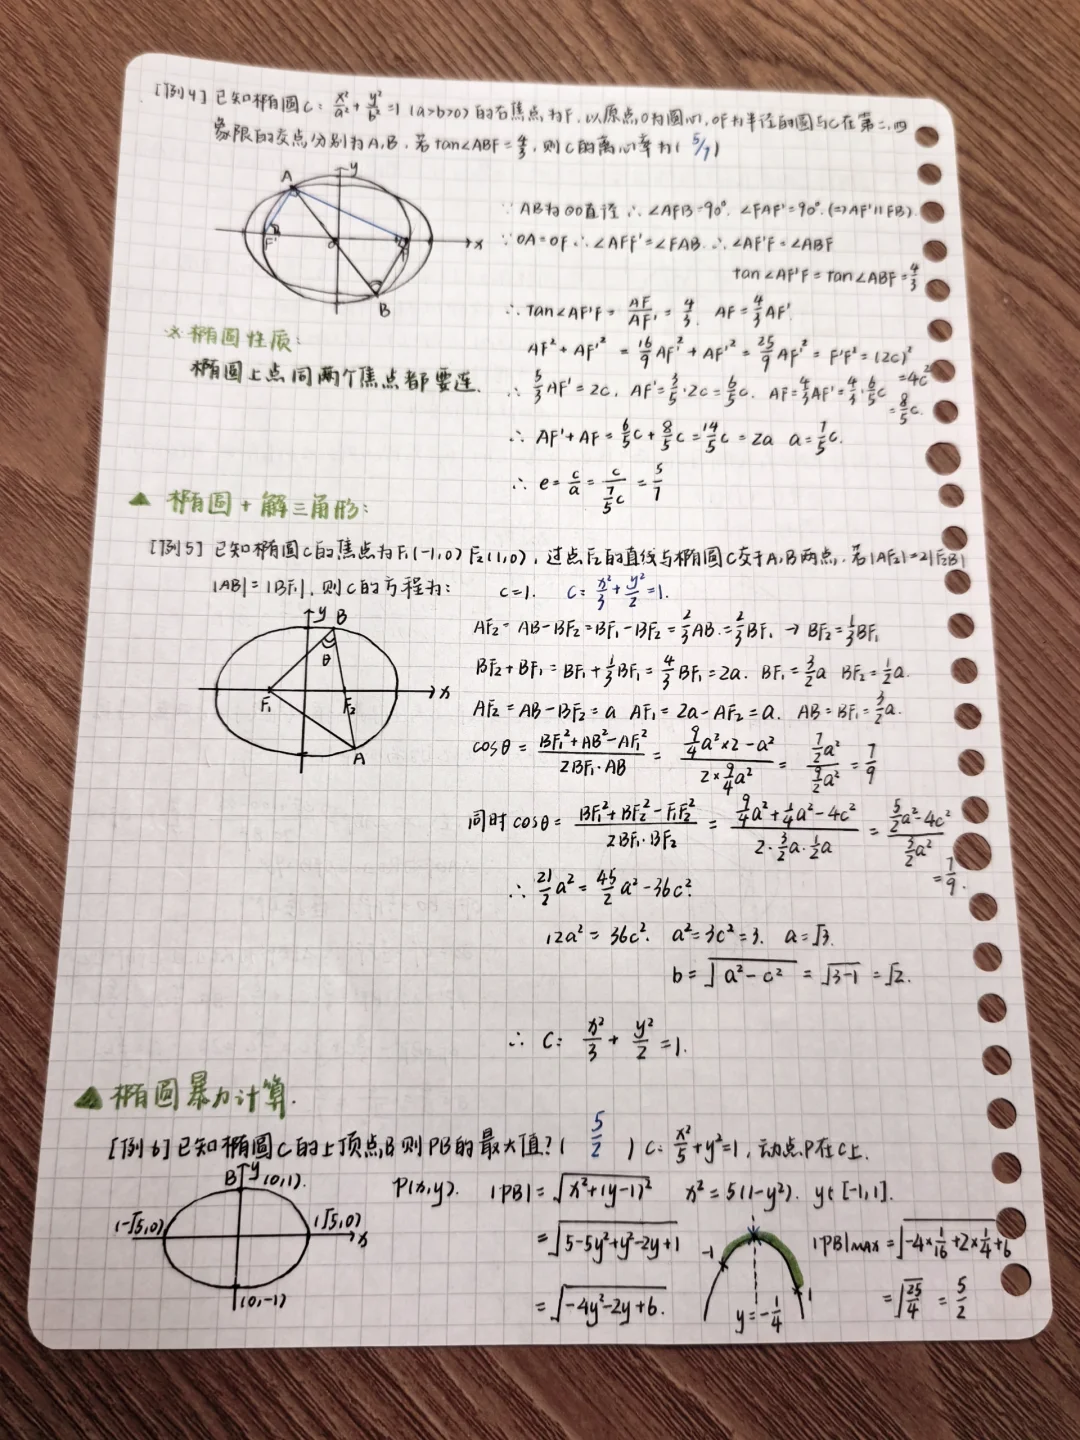 [例4] 已知椭圆C: x²/a² + y²/b² =1 (a>b>0) 的右焦点为F, 以原点O为圆心, OF为半径的圆与C在第二、四
象限的交点分别为A,B. 若 tan∠ABF= 4/3, 则C的离心率为( 5/7 )
A
y
F'
O
F
x
B
∵ AB为⊙O直径 ∴ ∠AFB=90°. ∠FAF'=90°. (⇒AF'∥FB).
∵ OA=OF ∴ ∠AFF'=∠FAB. ∴ ∠AF'F=∠ABF
tan∠AF'F = tan∠ABF = 4/3
∴ tan∠AF'F = AF/AF' = 4/3. AF= 4/3 AF'.
AF²+AF'² = 16/9 AF'² + AF'² = 25/9 AF'² = F'F² = (2c)²
=4c²
∴ 5/3 AF' = 2c, AF'= 3/5·2c= 6/5 c. AF= 4/3 AF'= 4/3· 6/5 c
= 8/5 c.
∴ AF'+AF= 6/5 c+ 8/5 c= 14/5 c = 2a a= 7/5 c.
∴ e= c/a = c/(7/5 c) = 5/7
※ 椭圆性质:
椭圆上点同两个焦点都要连.
▲ 椭圆 + 解三角形:
[例5] 已知椭圆C的焦点为F₁(-1,0) F₂(1,0), 过点F₂的直线与椭圆C交于A,B两点. 若|AF₂|=2|F₂B|
|AB|=|BF₁|, 则C的方程为: c=1. C: x²/3 + y²/2 =1.
y
B
θ
F₁
F₂
x
A
AF₂ = AB-BF₂ = BF₁-BF₂ = 2/3 AB = 2/3 BF₁ → BF₂= 1/3 BF₁
BF₂+BF₁ = BF₁+ 1/3 BF₁ = 4/3 BF₁ = 2a. BF₁= 3/2 a BF₂= 1/2 a.
AF₂ = AB-BF₂ = a AF₁ = 2a-AF₂ = a. AB = BF₁ = 3/2 a.
cosθ = (BF₁²+AB²-AF₁²)/(2BF₁·AB) = (9/4 a²×2-a²)/(2× 9/4 a²) = (7/2 a²)/(9/2 a²) = 7/9
同时 cosθ = (BF₁²+BF₂²-F₁F₂²)/(2BF₁·BF₂) = (9/4 a²+ 1/4 a²-4c²)/(2· 3/2 a· 1/2 a) = (5/2 a²-4c²)/(3/2 a²)
= 7/9.
∴ 21/2 a² = 45/2 a²-36c².
12a² = 36c². a²=3c²=3. a=√3.
b = √(a²-c²) = √(3-1) = √2.
∴ C: x²/3 + y²/2 =1.
▲ 椭圆暴力计算.
[例6] 已知椭圆C的上顶点B则PB的最大值?( 5/2 ) C: x²/5 +y²=1, 动点P在C上.
B
y
(0,1).
(-√5,0)
(√5,0)
x
(0,-1)
P(x,y). |PB|= √(x²+(y-1)²) x²=5(1-y²). y∈[-1,1].
= √(5-5y²+y²-2y+1)
= √(-4y²-2y+6).
-1
1
y=- 1/4
|PB|MAX = √(-4× 1/16 +2× 1/4 +6)
= √(25/4) = 5/2